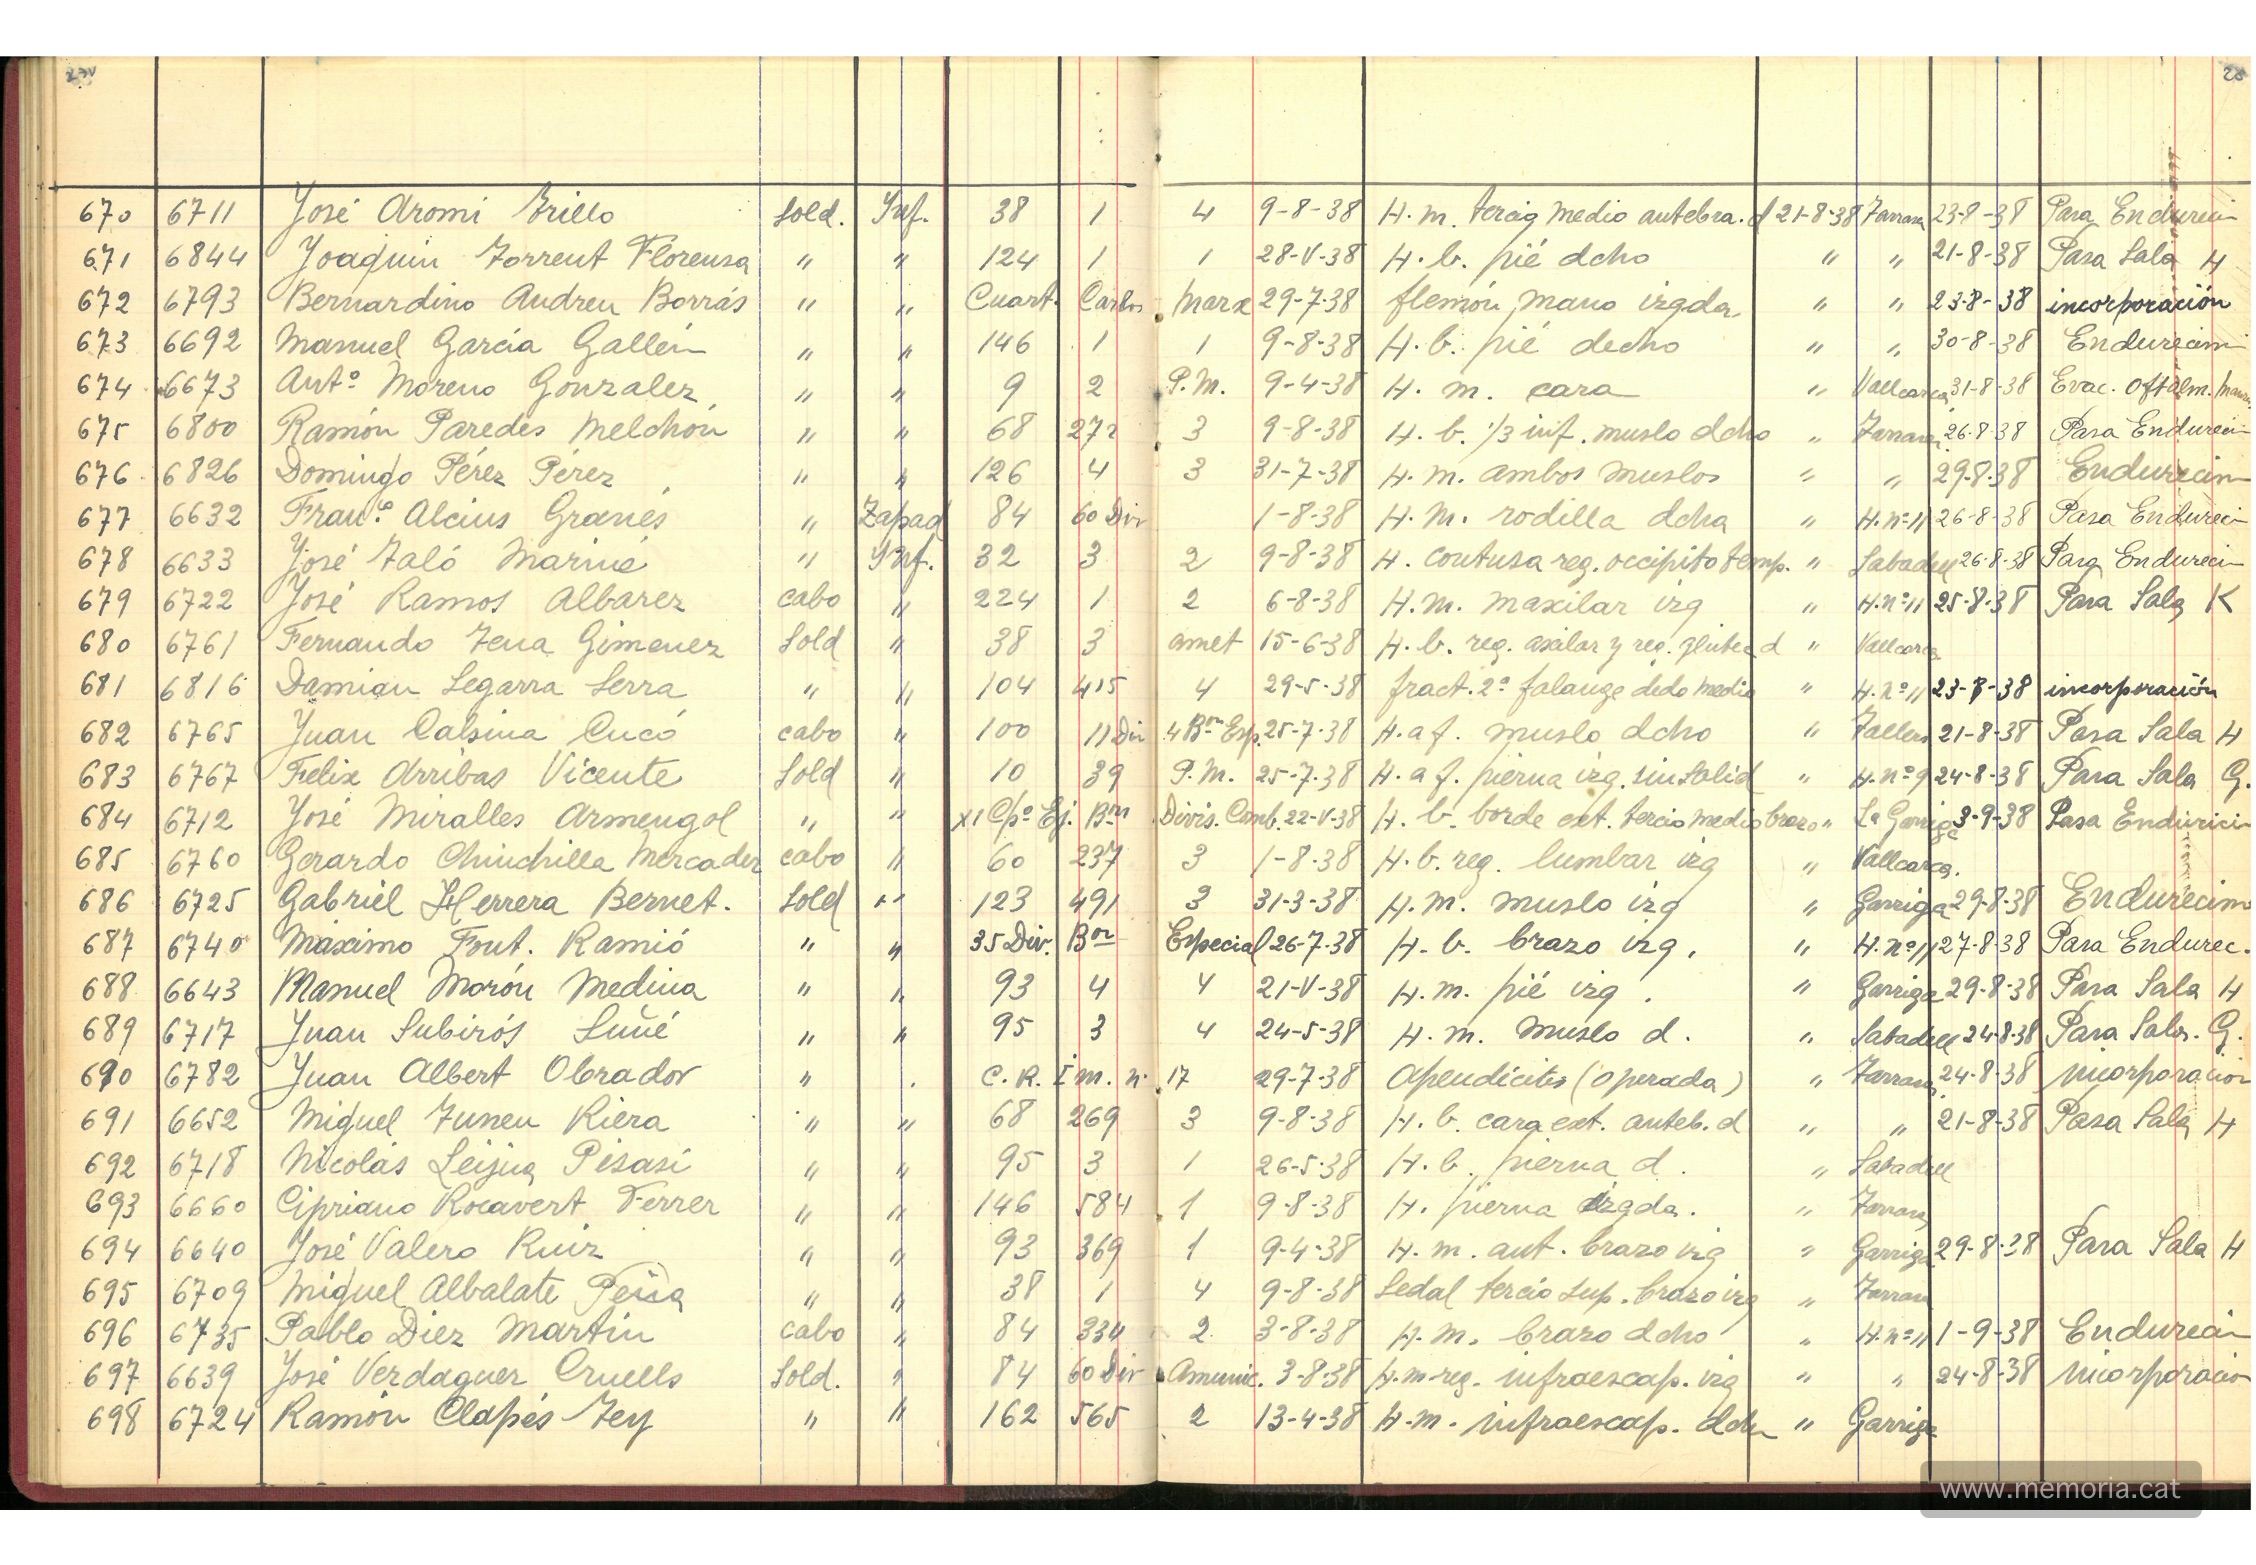 670 6711 José Aromi Grillo Sold. Inf. 38 1 4 9-8-38 H. m. tercio medio antebra. d 21-8-38 Tarrasa 23-8-38 Para Endureci
671 6844 Joaquin Torrent Florensa " " 124 1 1 28-V-38 H. b. pié dcho " " 21-8-38 Para Sala H
672 6793 Bernardino Andreu Borrás " " Cuart. Carlos Marx 29-7-38 flemón mano izgda. " " 23-8-38 incorporación
673 6692 Manuel García Gallén " " 146 1 1 9-8-38 H. b. pié decho " " 30-8-38 Endurecimi
674 6673 Antº Moreno Gonzalez " " 9 2 P.M. 9-4-38 H. m. cara " Vallcarca 31-8-38 Evac. Oftalm.
675 6800 Ramón Paredes Melchón " " 68 272 3 9-8-38 H. b. 1/3 inf. muslo dcho " Tarrasa 26-8-38 Para Endureci
676 6826 Domingo Pérez Pérez " " 126 4 3 31-7-38 H. m. ambos muslos " " 29-8-38 Endurecim
677 6632 Franco Alcius Granés " Zapad 84 60 Div 1-8-38 H. M. rodilla dcha " H. nº 11 26-8-38 Para Endureci
678 6633 José Taló Mariné " Inf. 32 3 2 9-8-38 H. contusa reg. occipito temp. " Sabadell 26-8-38 Para Endureci
679 6722 José Ramos Albarez cabo " 224 1 2 6-8-38 H. m. maxilar izq " H. nº 11 25-8-38 Para Sala K
680 6761 Fernando Tena Gimenez Sold " 38 3 amet 15-6-38 H. b. reg. axilar y reg. glutea d " Vallcarca
681 6816 Damian Segarra Serra " " 104 415 4 29-5-38 fract. 2ª falange dedo medio " H. nº 11 23-8-38 incorporación
682 6765 Juan Calsina Cucó cabo " 100 11 Div 4 Bon Esp. 25-7-38 H. a f. muslo dcho " Tallers 21-8-38 Para Sala H
683 6767 Felix Arribas Vicente Sold " 10 39 P. M. 25-7-38 H. a f. pierna izq. sinsolid " H. nº 9 24-8-38 Para Sala G.
684 6712 José Miralles Armengol " " XI Cpº Ej. Bon Divis. Comb. 22-V-38 H. b. borde ext. tercio medio brazo " La Garriga 3-9-38 Para Endureci
685 6760 Gerardo Chinchilla Mercader cabo " 60 237 3 1-8-38 H. b. reg. lumbar izq " Vallcarca.
686 6725 Gabriel Herrera Bernet. Sold " 123 491 3 31-3-38 H. m. muslo izq " Garriga 29-8-38 Endurecim
687 6740 Maximo Font. Ramió " " 35 Div. Bon Especial 26-7-38 H. b. brazo izq. " H. nº 11 27-8-38 Para Endurec.
688 6643 Manuel Morón Medina " " 93 4 4 21-V-38 H. m. pié izq. " Garriga 29-8-38 Para Sala H
689 6717 Juan Subirós Suñé " " 95 3 4 24-5-38 H. m. muslo d. " Sabadell 24-8-38 Para Sala. G.
690 6782 Juan Albert Obrador " . C. R. I m. n. 17 29-7-38 Apendicitis (operada) " Tarrasa 24-8-38 incorporación
691 6652 Miguel Funeu Riera " " 68 269 3 9-8-38 H. b. cara ext. anteb. d " " 21-8-38 Para Sala H
692 6718 Nicolás Leijua Pisasi " " 95 3 1 26-5-38 H. b. pierna d. " Sabadell
693 6660 Cipriano Rocavert Ferrer " " 146 584 1 9-8-38 H. pierna izgda. " Tarrasa
694 6640 José Valero Ruiz " " 93 369 1 9-4-38 H. m. ant. brazo izq " Garriga 29-8-38 Para Sala H
695 6709 Miguel Albalate Peña " " 38 1 4 9-8-38 Sedal tercio sup. brazo izq " Tarrasa
696 6735 Pablo Diez Martin cabo " 84 334 2 3-8-38 H. m. brazo dcho " H. nº 11 1-9-38 Endureci
697 6639 José Verdaguer Cruells Sold. " 84 60 Div Amunic. 3-8-38 H. m-reg. infraescap. izq " " 24-8-38 incorporacio
698 6724 Ramón Clapés Tey " " 162 565 2 13-4-38 H. m. infraescap. dch " Garriga
www.memoria.cat